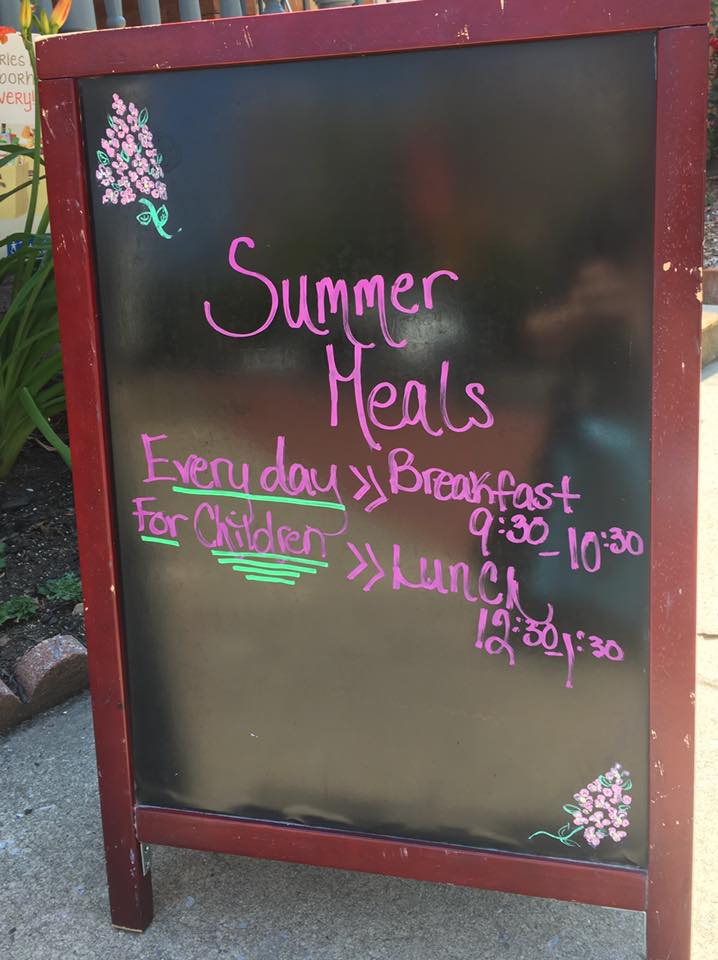 Summer
Meals
Every day >> Breakfast
9:30 - 10:30
For Children >> Lunch
12:30-1:30